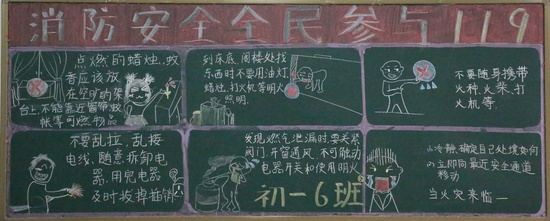 消防安全全民参与119
点燃的蜡烛,蚊
香应该放
在空旷的架
台上,不能靠近窗帘蚊
帐等可燃物品
到床底、阁楼处找
东西时不要用油灯
蜡烛,打火机等明火
照明.
不要随身携带
火种,火柴、打
火机等
不要乱拉,乱接
电线,随意拆卸电
器,用完电器
及时拔掉插销
发现燃气泄漏时,要关紧
阀门,开窗通风,不可触动
电器开关和使用明火
初一6班
心冷静,确定自己处境如何
心立即向最近安全通道
移动
当火灾来临—